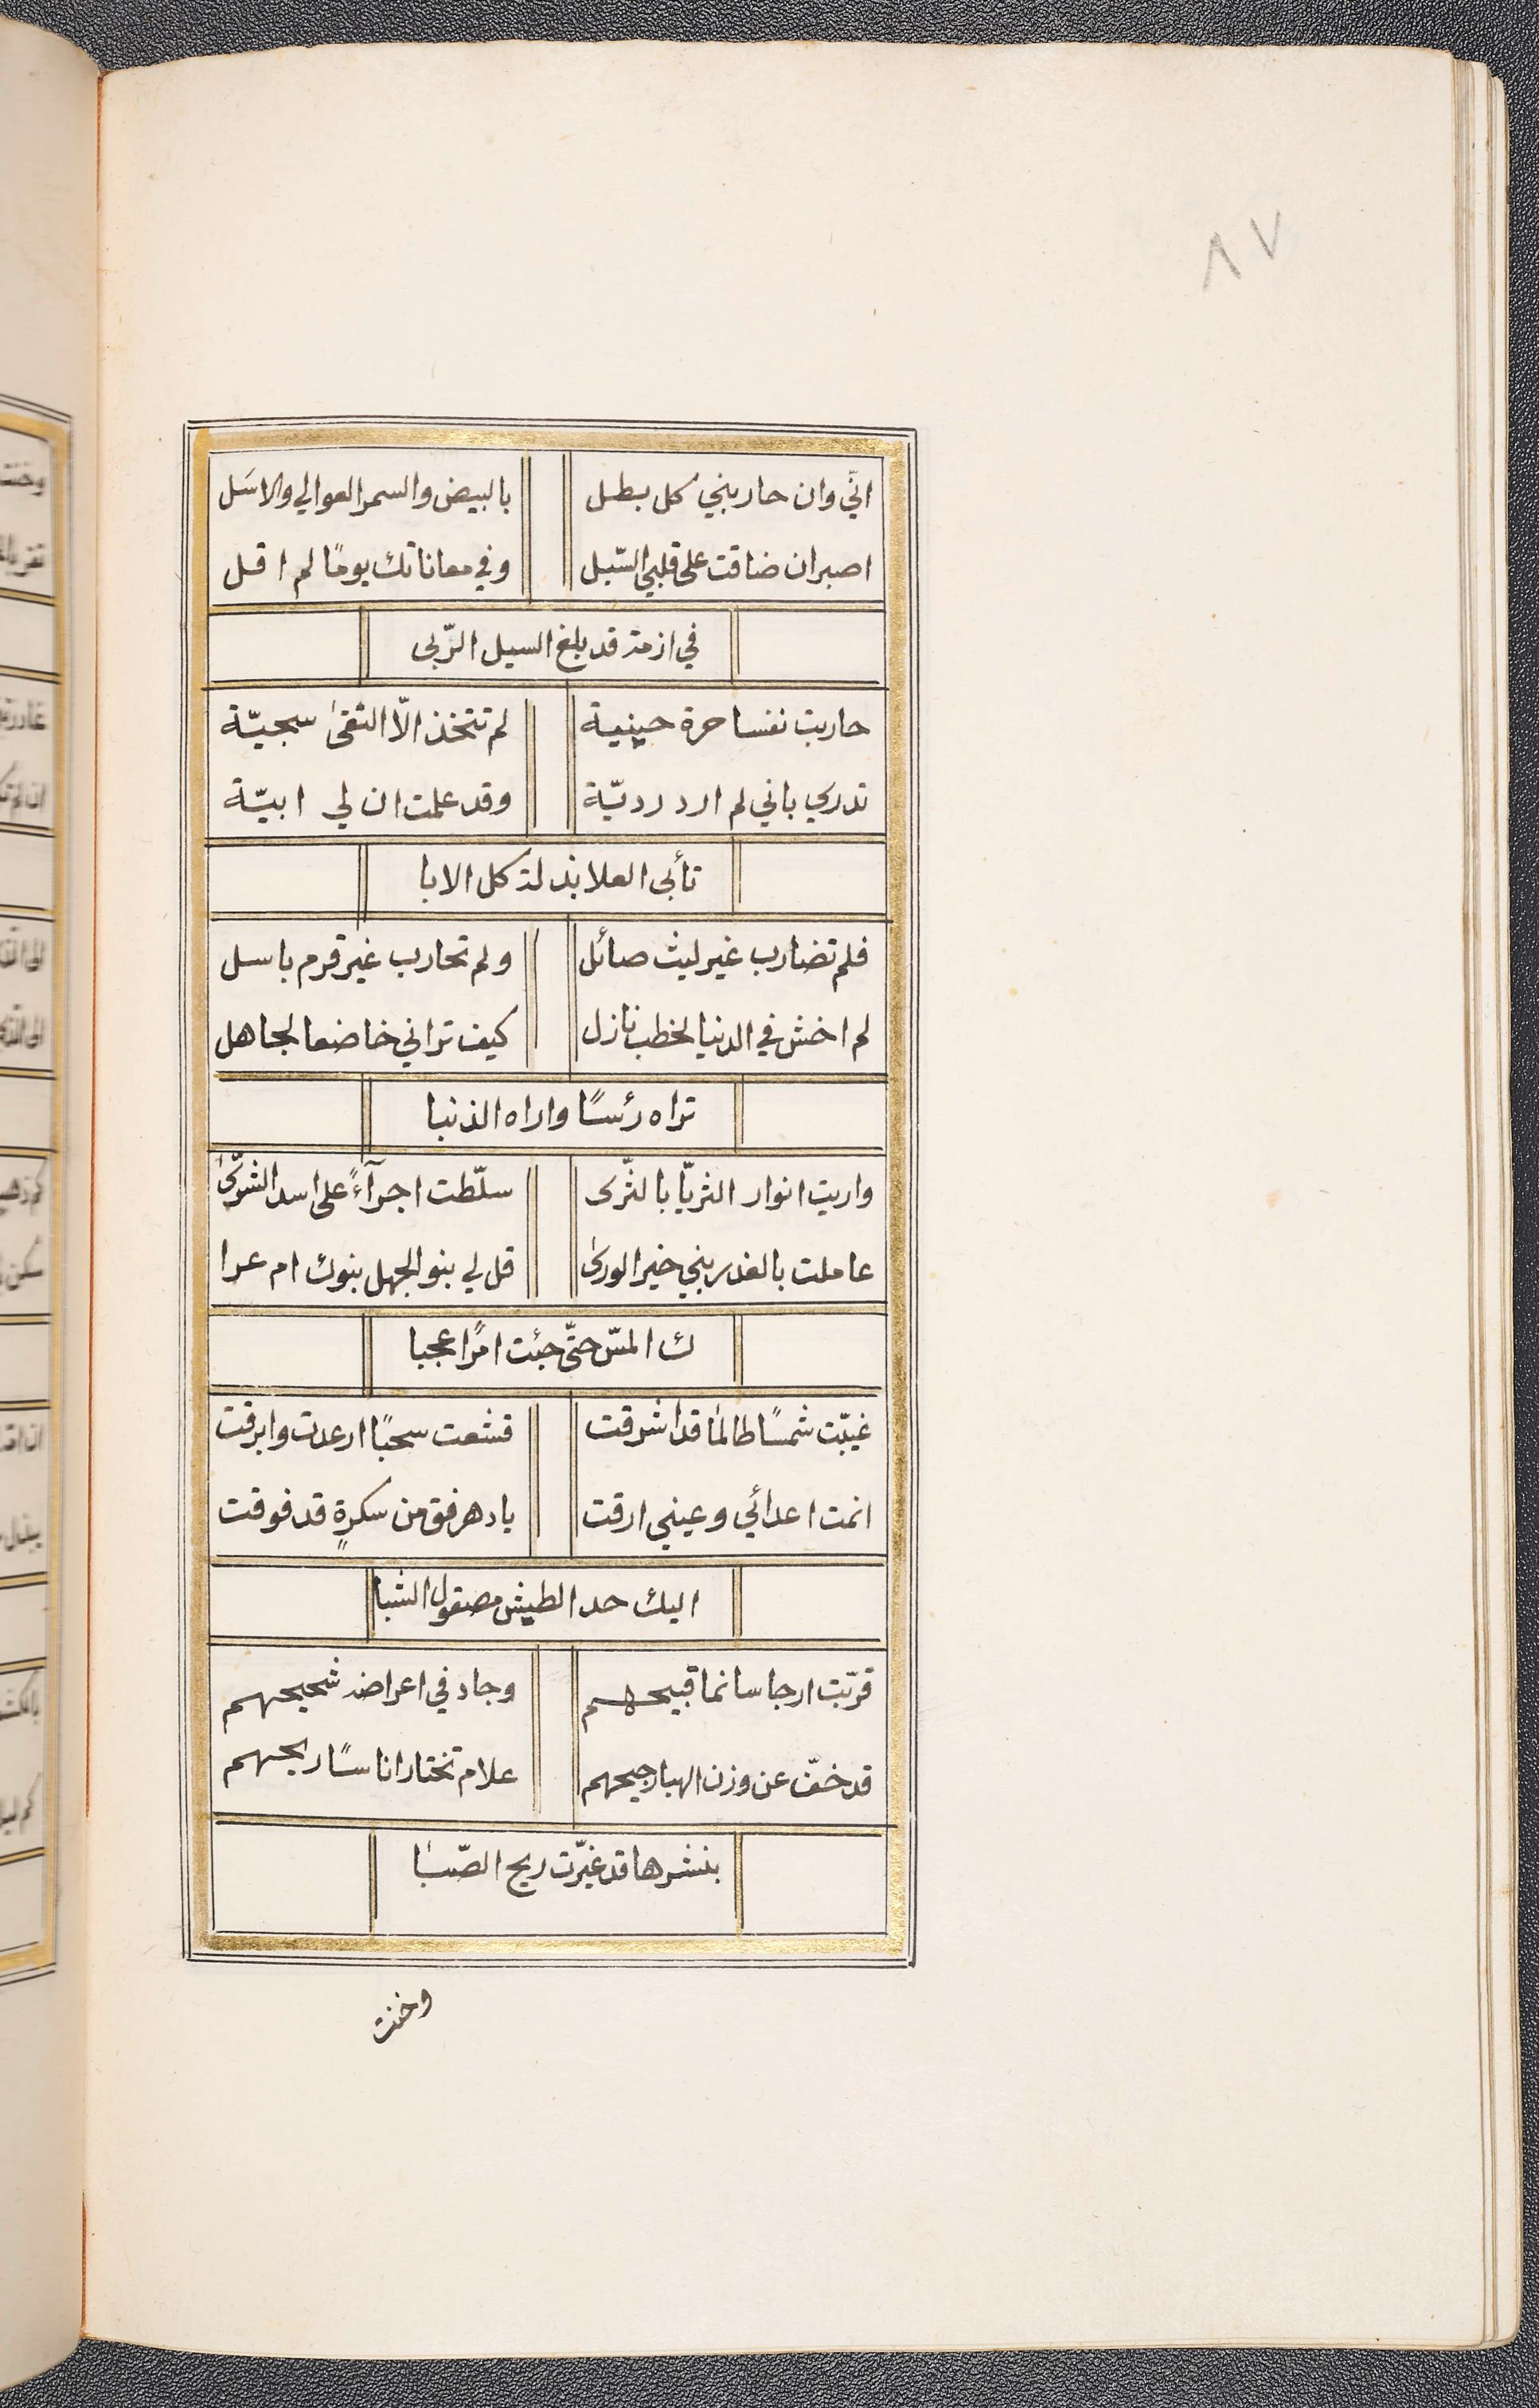 ٨٧
انّي وان حاربني كل بطل بالبيض والسمر العوالي والاسَل
اصبر ان ضاقت على قلبي السّبل وفي معاناتك يومًا لم اقل
في ازمة قد بلغ السيل الرّبى
حاربت نفسا حرة حسينية لم تتخذ الّا التقىٰ سجيّة
تدري باني لم ارد رديّة وقد علمت ان لي ابيّة
تأبى العلا بذلة كل الابا
فلم تضارب غير ليث صائل ولم تحارب غير قرم باسل
لم اخش في الدنيا لخطب نازل كيف تراني خاضعا لجاهل
تراه رؤسًا واراه الذنبا
واريت انوار الثريّا بالثّرى سلّطت اجرآءً على اسد الشرّىٰ
عاملت بالغدر بني خير الورىٰ قل لي بنو الجهل بنوك ام عرا
ك المسّ حتّى جئت امرًا عجبا
غيبّت شمسًا طالما قد اشرقت قشعت سحبًا ارعدت وابرقت
انمت اعدائي وعيني ارقت يا دهر فق من سكرةٍ قد فوقت
اليك حد الطيش مصقول الشبا
قرّبت ارجاسا نما قبيحهم وجاد في اعراضه شحيحهم
قد خفّ عن وزن الهبا رجيحهم علام تختار اناسًا ريحهم
بنشرها قد غيّرت ريح الصّبا
وخنت